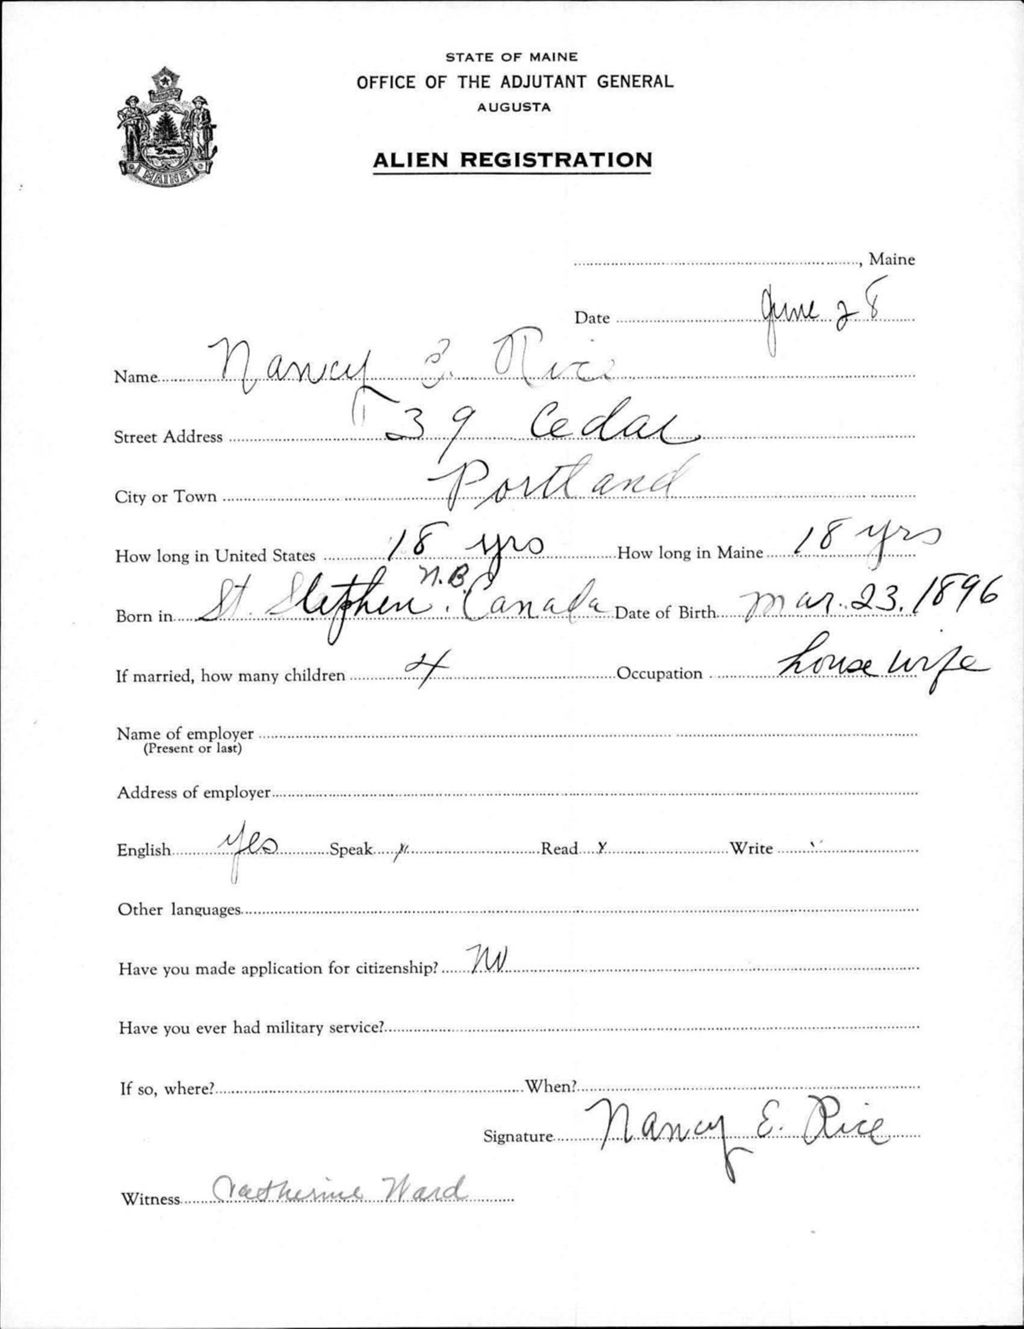 STATE OF MAINE
OFFICE OF THE ADJUTANT GENERAL
AUGUSTA
ALIEN REGISTRATION
MAINE
, Maine
Date June 28
Name Nancy E. Rice
Street Address 39 Cedar
City or Town Portland
How long in United States 18 yrs How long in Maine 18 yrs
Born in St. Stephen N.B. Canada Date of Birth Mar. 23. 1896
If married, how many children 4 Occupation house wife
Name of employer
(Present or last)
Address of employer
English yes Speak x Read x Write
Other languages
Have you made application for citizenship? No
Have you ever had military service?
If so, where? When?
Signature Nancy E. Rice
Witness Catherine Ward